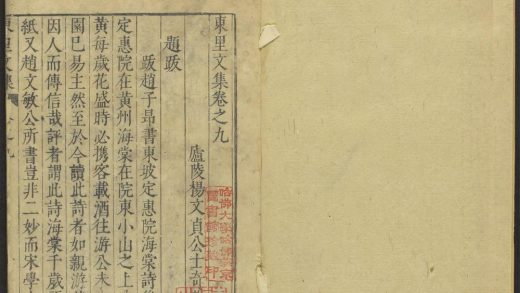 東里文集卷之九
廬陵楊文貞公士奇
題跋
跋趙子昂書東坡定惠院海棠詩
定惠院在黃州海棠在院東小山之上
黃每歲花盛時必携客載酒往游公夫
園已易主然至於今讀此詩者如親游
因人而傳信哉評者謂此詩海棠千歲
紙又趙文敏公所書豈非二妙而宋學
東里文集